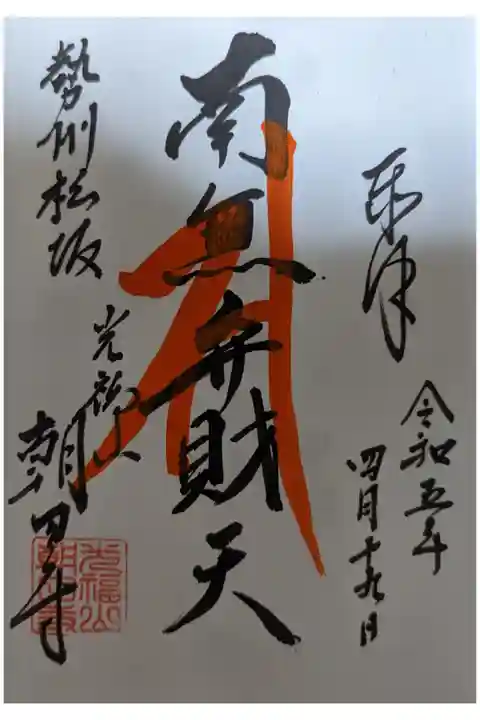 令和五年
四月十九日
南無弁財天
勢州松坂
光福山
朝田寺
光福山
朝田寺